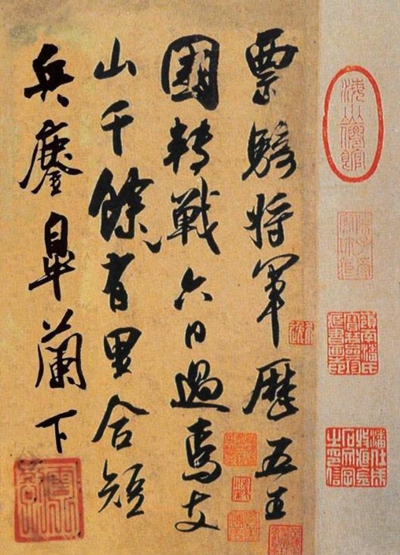 海山僊館
票騎將軍歷五王
國轉戰六日過焉支
山千餘有里合短
兵鏖皋蘭下